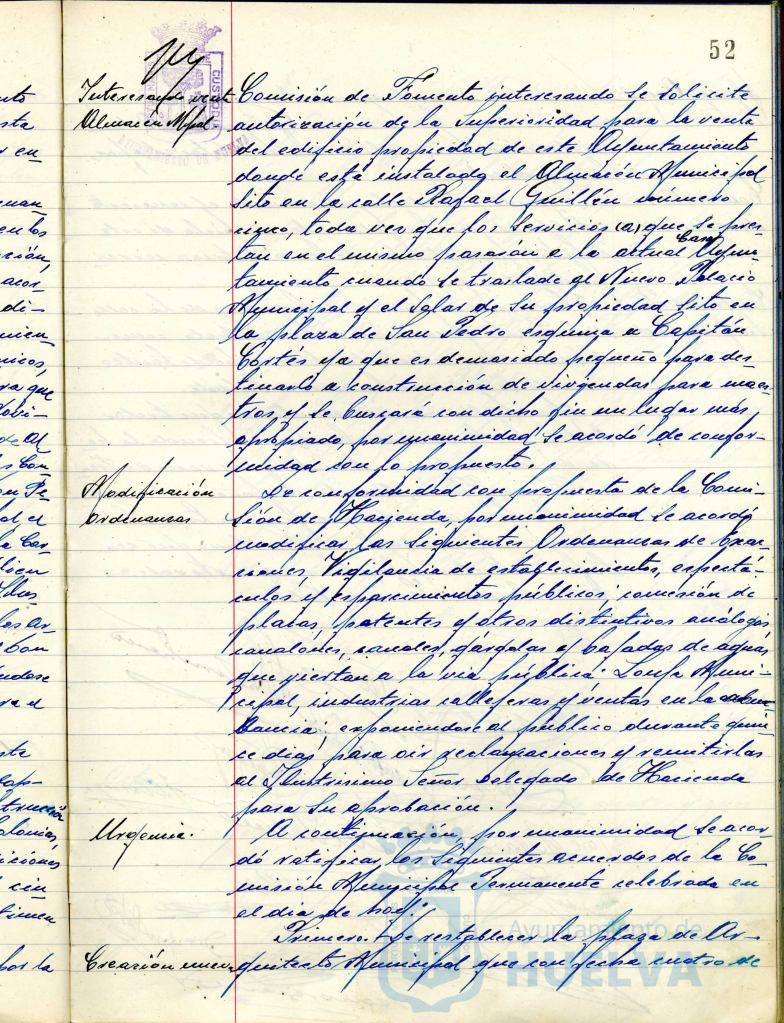 52
Interesando venta
Almacén Mpal
Comisión de Fomento interesando se solicite
autorización de la Superioridad para la venta
del edificio propiedad de este Ayuntamiento
donde está instalado el Almacén Municipal
sito en la calle Rafael Guillén número
cinco, toda vez que los servicios (a) que se pres-
tan en el mismo pasarán a la actual Casa Ayun-
tamiento cuando se traslade al Nuevo Palacio
Municipal y el solar de su propiedad sito en
la plaza de San Pedro esquina a Capitán
Cortés ya que es demasiado pequeño para des-
tinarlo a construcción de viviendas para maes-
tros, y se buscará con dicho fin un lugar más
apropiado, por unanimidad se acordó de confor-
midad con lo propuesto.
Modificación
Ordenanzas
De conformidad con propuesta de la Comi-
sión de Hacienda, por unanimidad se acordó
modificar las siguientes Ordenanzas de Exac-
ciones, Vigilancia de establecimientos, espectá-
culos y esparcimientos públicos; concesión de
placas, patentes y otros distintivos análogos
canalones, canales, gárgolas y bajadas de aguas
que viertan a la vía pública; Lonja Muni-
cipal, industrias callejeras y ventas en la ambu-
lancia; exponiéndose al público durante quin-
ce días para oir reclamaciones y remitirlas
al Ilustrísimo Señor Delegado de Hacienda
para su aprobación.
Urgencia.
A continuación, por unanimidad se acor-
dó ratificar los siguientes acuerdos de la Co-
misión Municipal Permanente celebrada en
el día de hoy:
Primero: Restablecer la plaza de Ar-
Creación nueva
quitecto Municipal que con fecha cuatro de
Ayuntamiento de
HUELVA